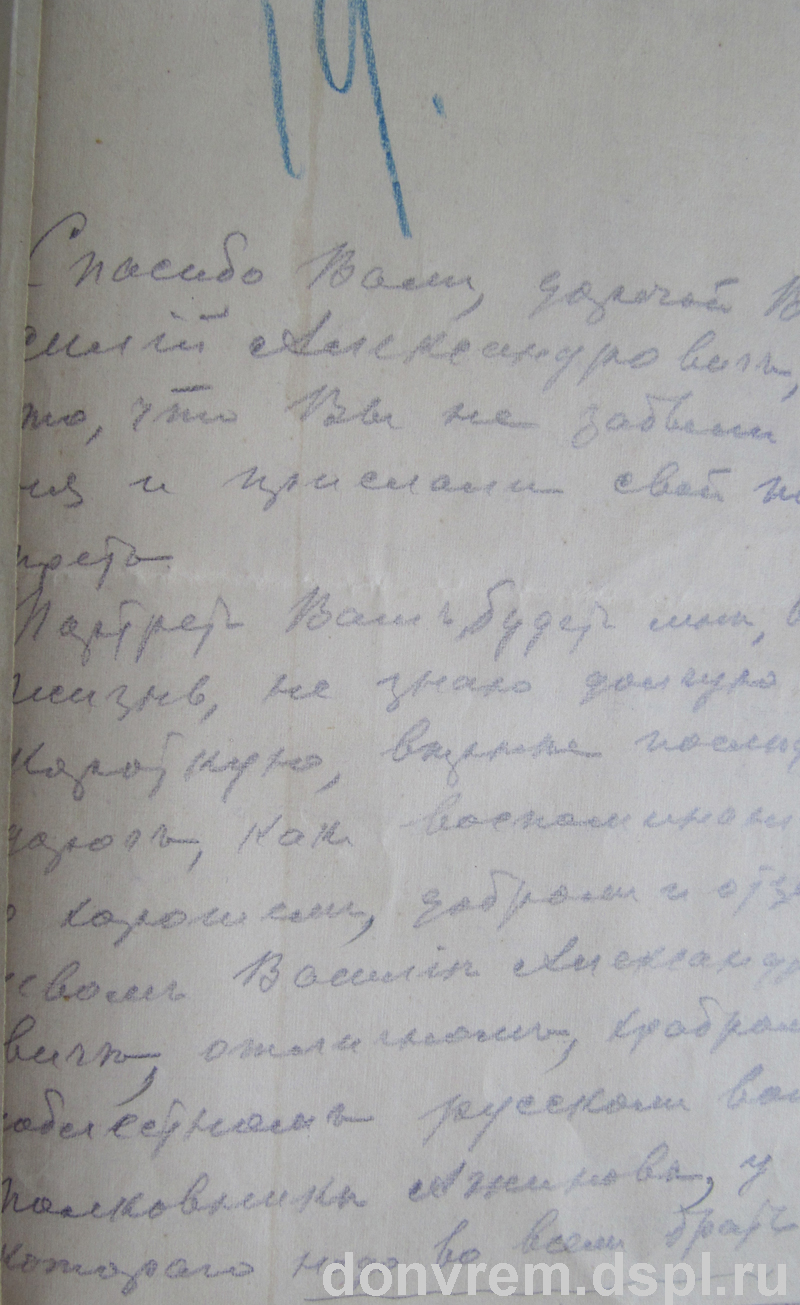 19.
Спасибо Вамъ, дорогой В
силій Александровичъ,
то, что Вы не забыли
ня и прислали свой по
третъ
Портретъ Вашъ, будетъ мнѣ, в
жизнь, не знаю долгую
короткую, вполнѣ
дорогъ, какъ воспоминани
о хорошемъ, добромъ и отз
ивомъ Василіи Александр
вичѣ, отличномъ, храбром
облестномъ русскомъ вои
полковникѣ Ажиновѣ, у
котораго надо во всемъ брать
donvrem.dspl.ru